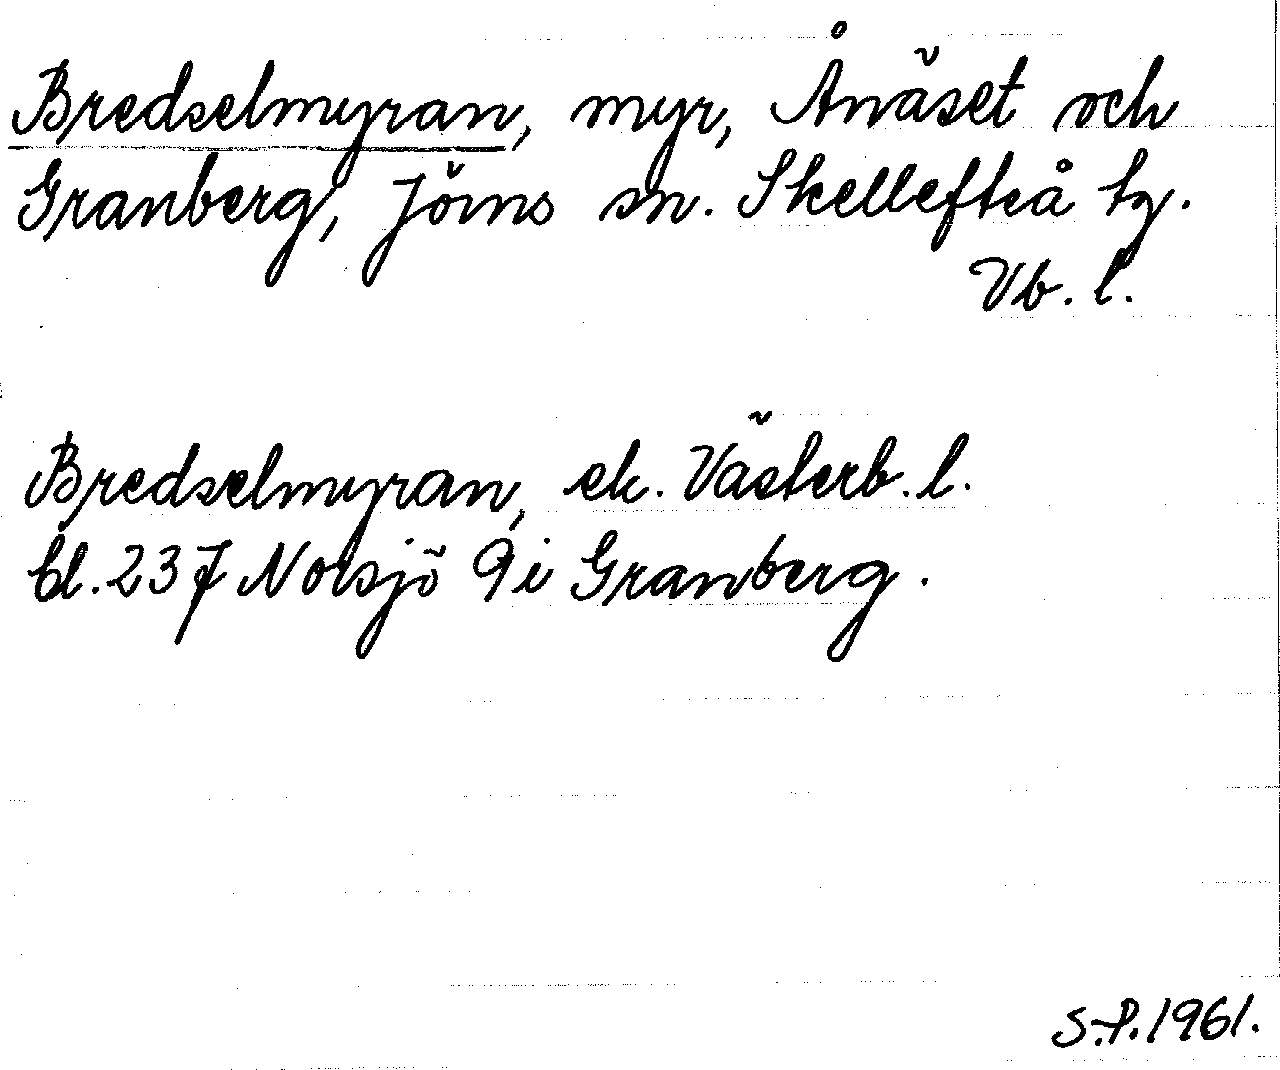 Bredselmyran, myr, Ånäset och
Granberg, Jörns sn. Skellefteå tg.
Vb. l.
Bredselmyran, ek. Västerb. l.
bl. 237 Norsjö 9i Granberg.
S.P. 1961.